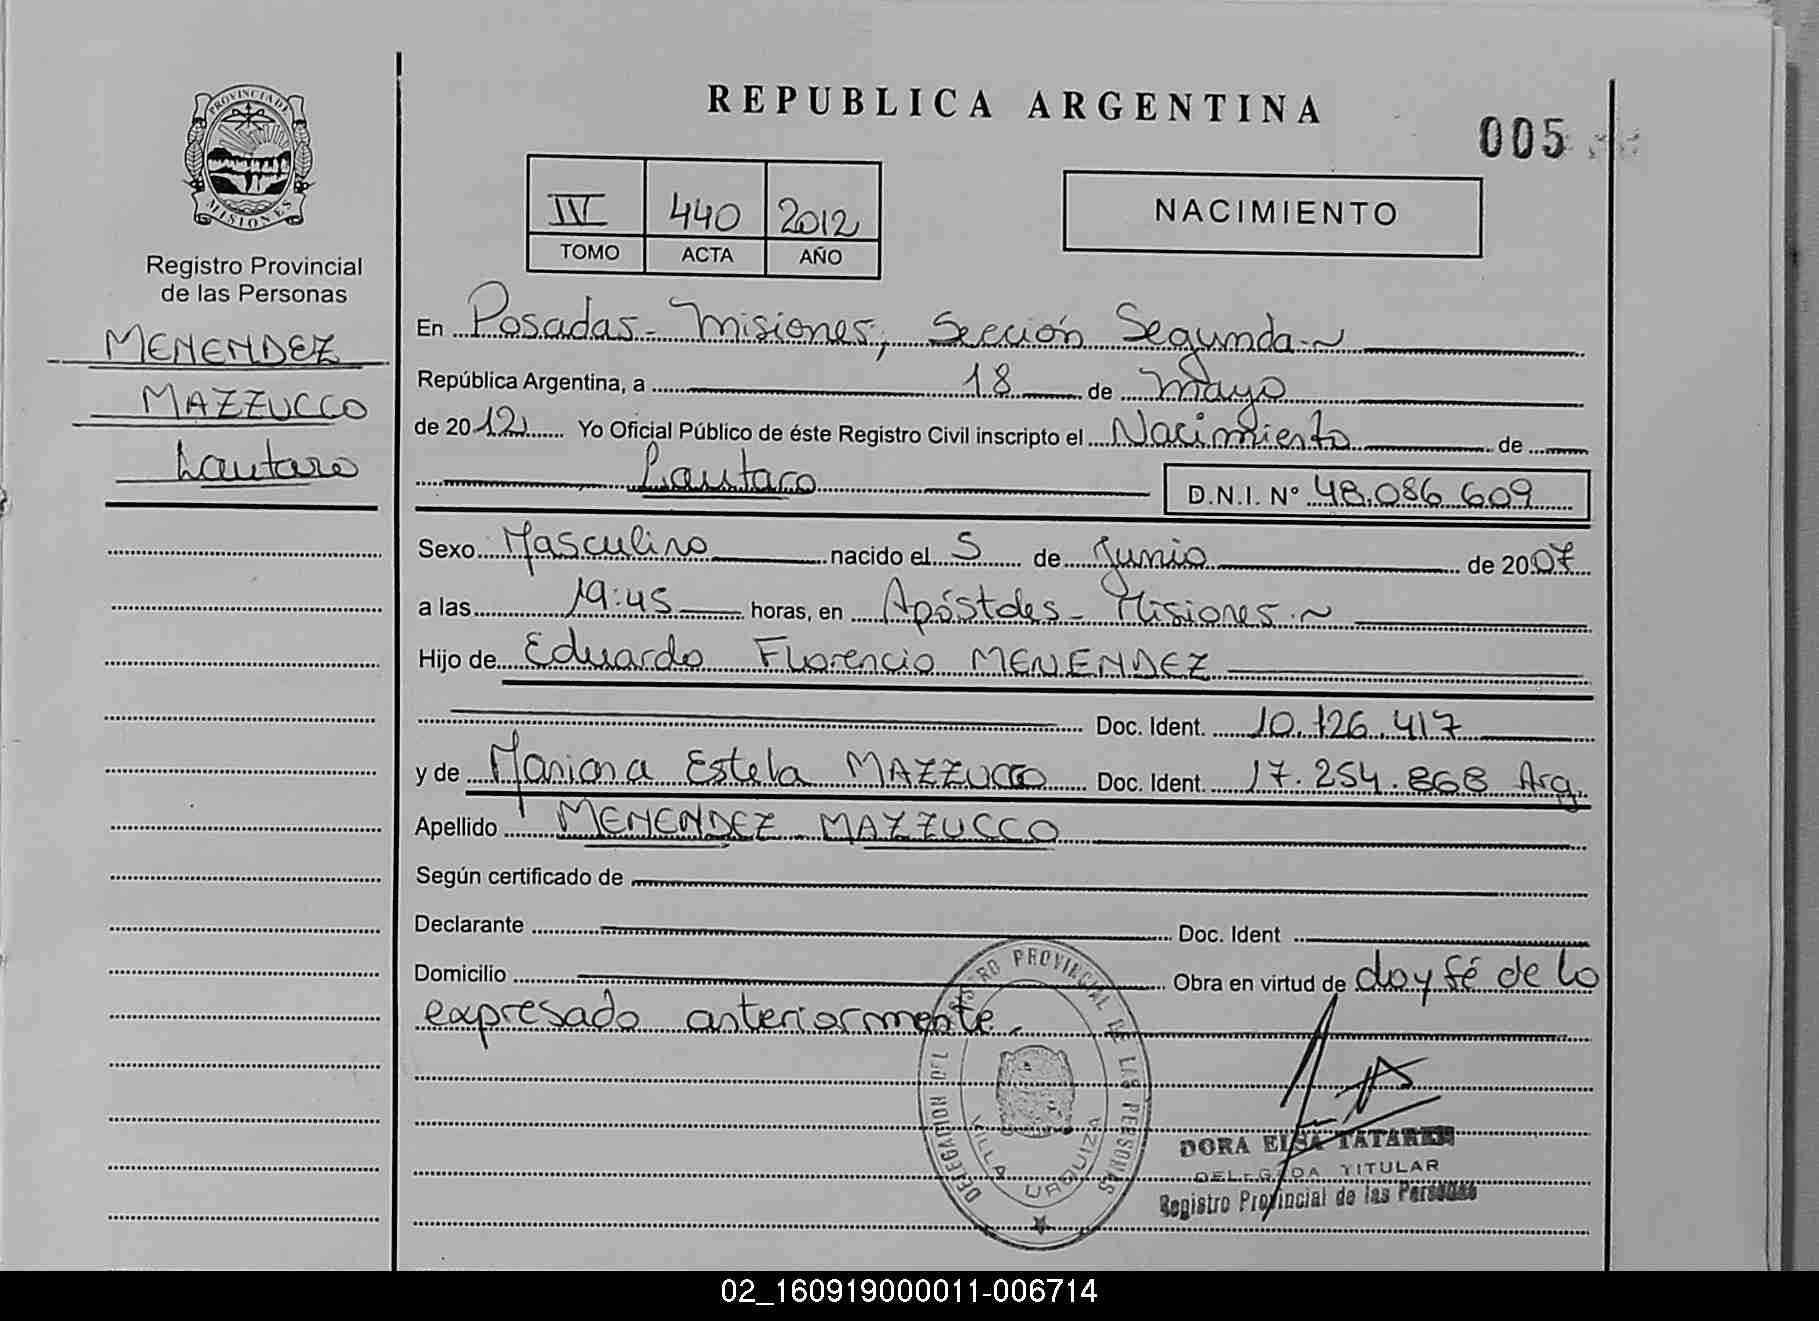 REPUBLICA ARGENTINA
005
PROVINCIA DE
MISIONES
Registro Provincial
de las Personas
MENENDEZ
MAZZUCCO
Lautaro
IV 440 2012
TOMO ACTA AÑO
NACIMIENTO
En Posadas - Misiones, Sección Segunda
República Argentina, a 18 de Mayo
de 2012 Yo Oficial Público de éste Registro Civil inscripto el Nacimiento de
Lautaro D.N.I. N° 48.086.609
Sexo Masculino nacido el 5 de Junio de 2007
a las 19:45 horas, en Apóstoles - Misiones
Hijo de Eduardo Florencio MENENDEZ
Doc. Ident. 10.126.417
y de Mariana Estela MAZZUCCO Doc. Ident. 17.254.868 Arg.
Apellido MENENDEZ MAZZUCCO
Según certificado de
Declarante Doc. Ident
Domicilio Obra en virtud de doy fé de lo
expresado anteriormente.
DELEGACION DEL REGISTRO PROVINCIAL DE LAS PERSONAS
VILLA URQUIZA
DORA ELSA
DELEGADA TITULAR
Registro Provincial de las Personas
02_160919000011-006714